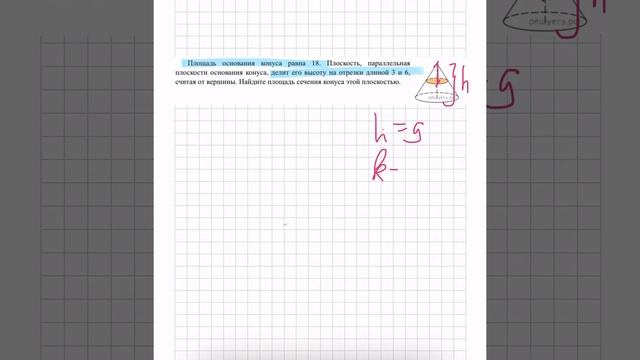 Площадь основания конуса равна 18. Плоскость, параллельная
плоскости основания конуса, делит его высоту на отрезки длиной 3 и 6,
считая от вершины. Найдите площадь сечения конуса этой плоскостью.
h
h = 9
k -